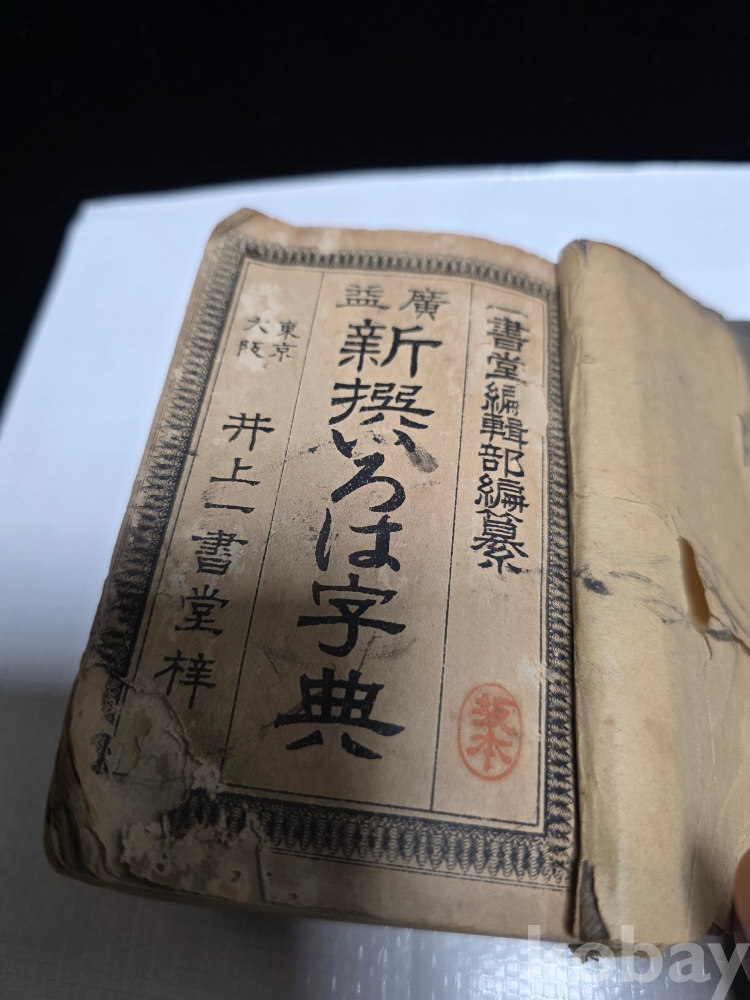 一書堂編輯部編纂
坂本
廣益
新撰いろは字典
東京
大阪
井上一書堂梓
kobay